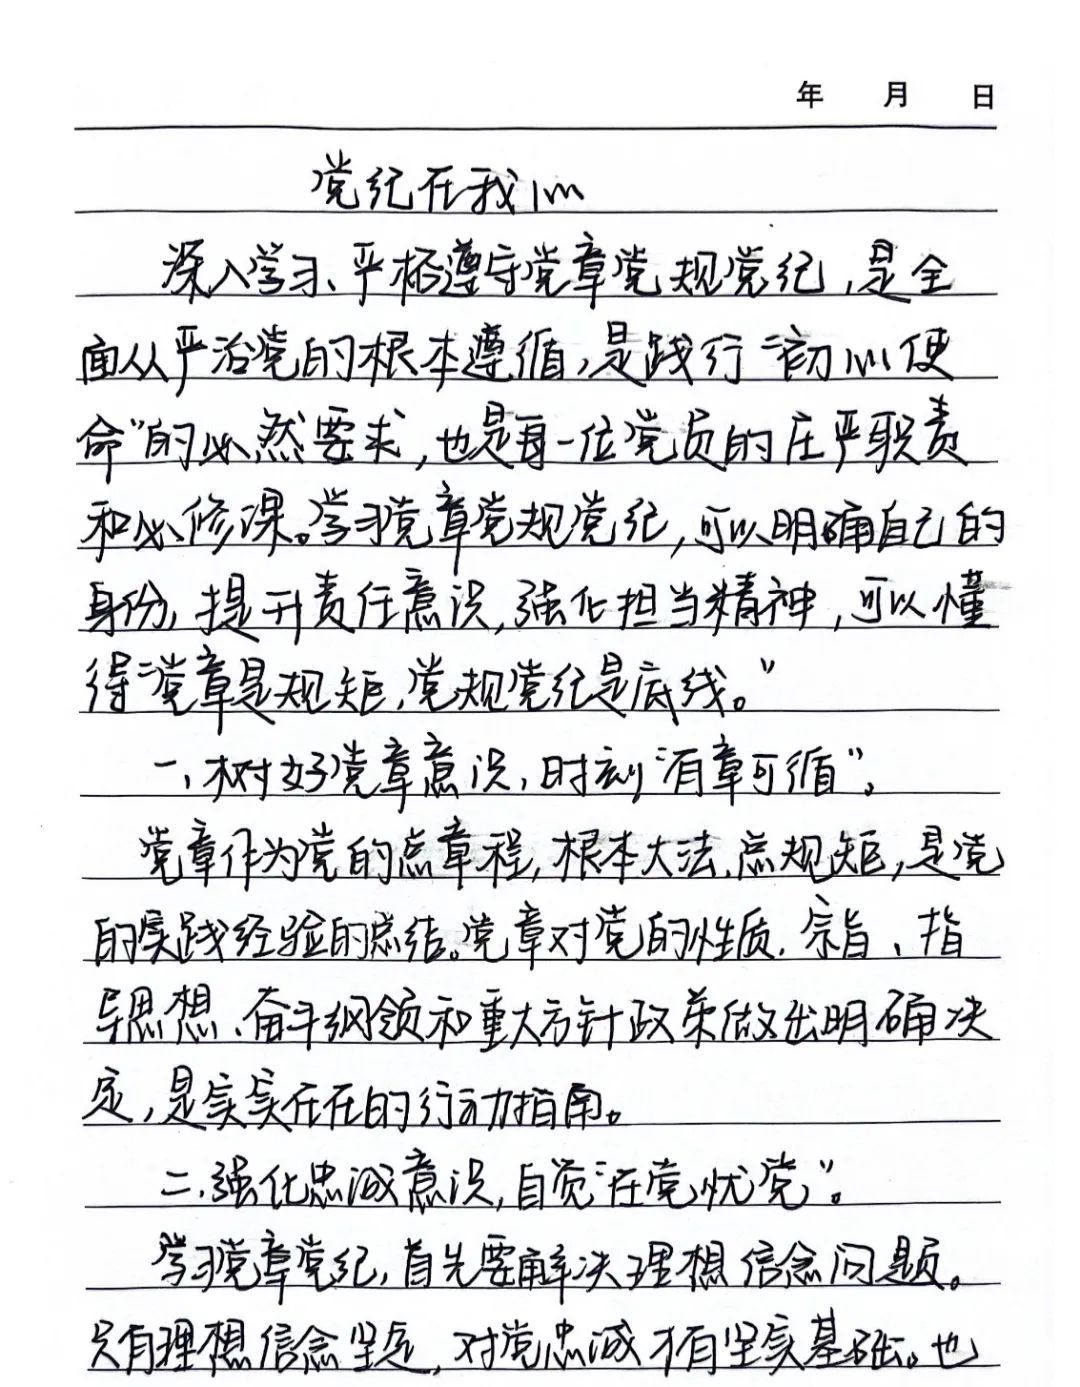 年 月 日
党纪在我心
深入学习、严格遵守党章党规党纪，是全
面从严治党的根本遵循，是践行“初心使
命”的必然要求，也是每一位党员的庄严职责
和必修课。学习党章党规党纪，可以明确自己的
身份，提升责任意识，强化担当精神，可以懂
得“党章是规矩，党规党纪是底线。”
一、树好党章意识，时刻“有章可循”。
党章作为党的总章程，根本大法、总规矩，是党
的实践经验的总结。党章对党的性质、宗旨、指
导思想、奋斗纲领和重大方针政策做出明确决
定，是实实在在的行动指南。
二、强化忠诚意识，自觉“在党忧党”。
学习党章党纪，首先要解决理想信念问题。
只有理想信念坚定，对党忠诚才有坚实基础。也